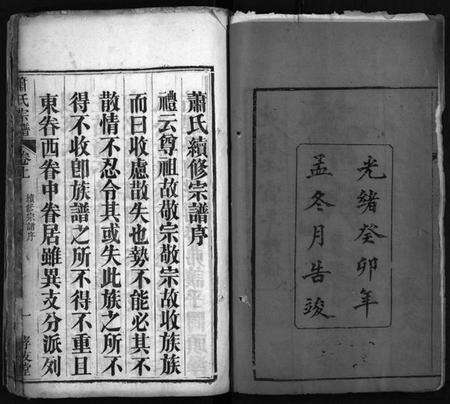 光緒癸卯年
孟冬月告竣
蕭氏續修宗譜序
禮云尊祖故敬宗敬宗故收族族
而曰收慮散失也勢不能必其不
散情不忍令其或失此族之所不
得不收卽族譜之所不得不重且
東眷西眷中眷居雖異支分派列
蕭氏宗譜
卷上
續修宗譜序
一